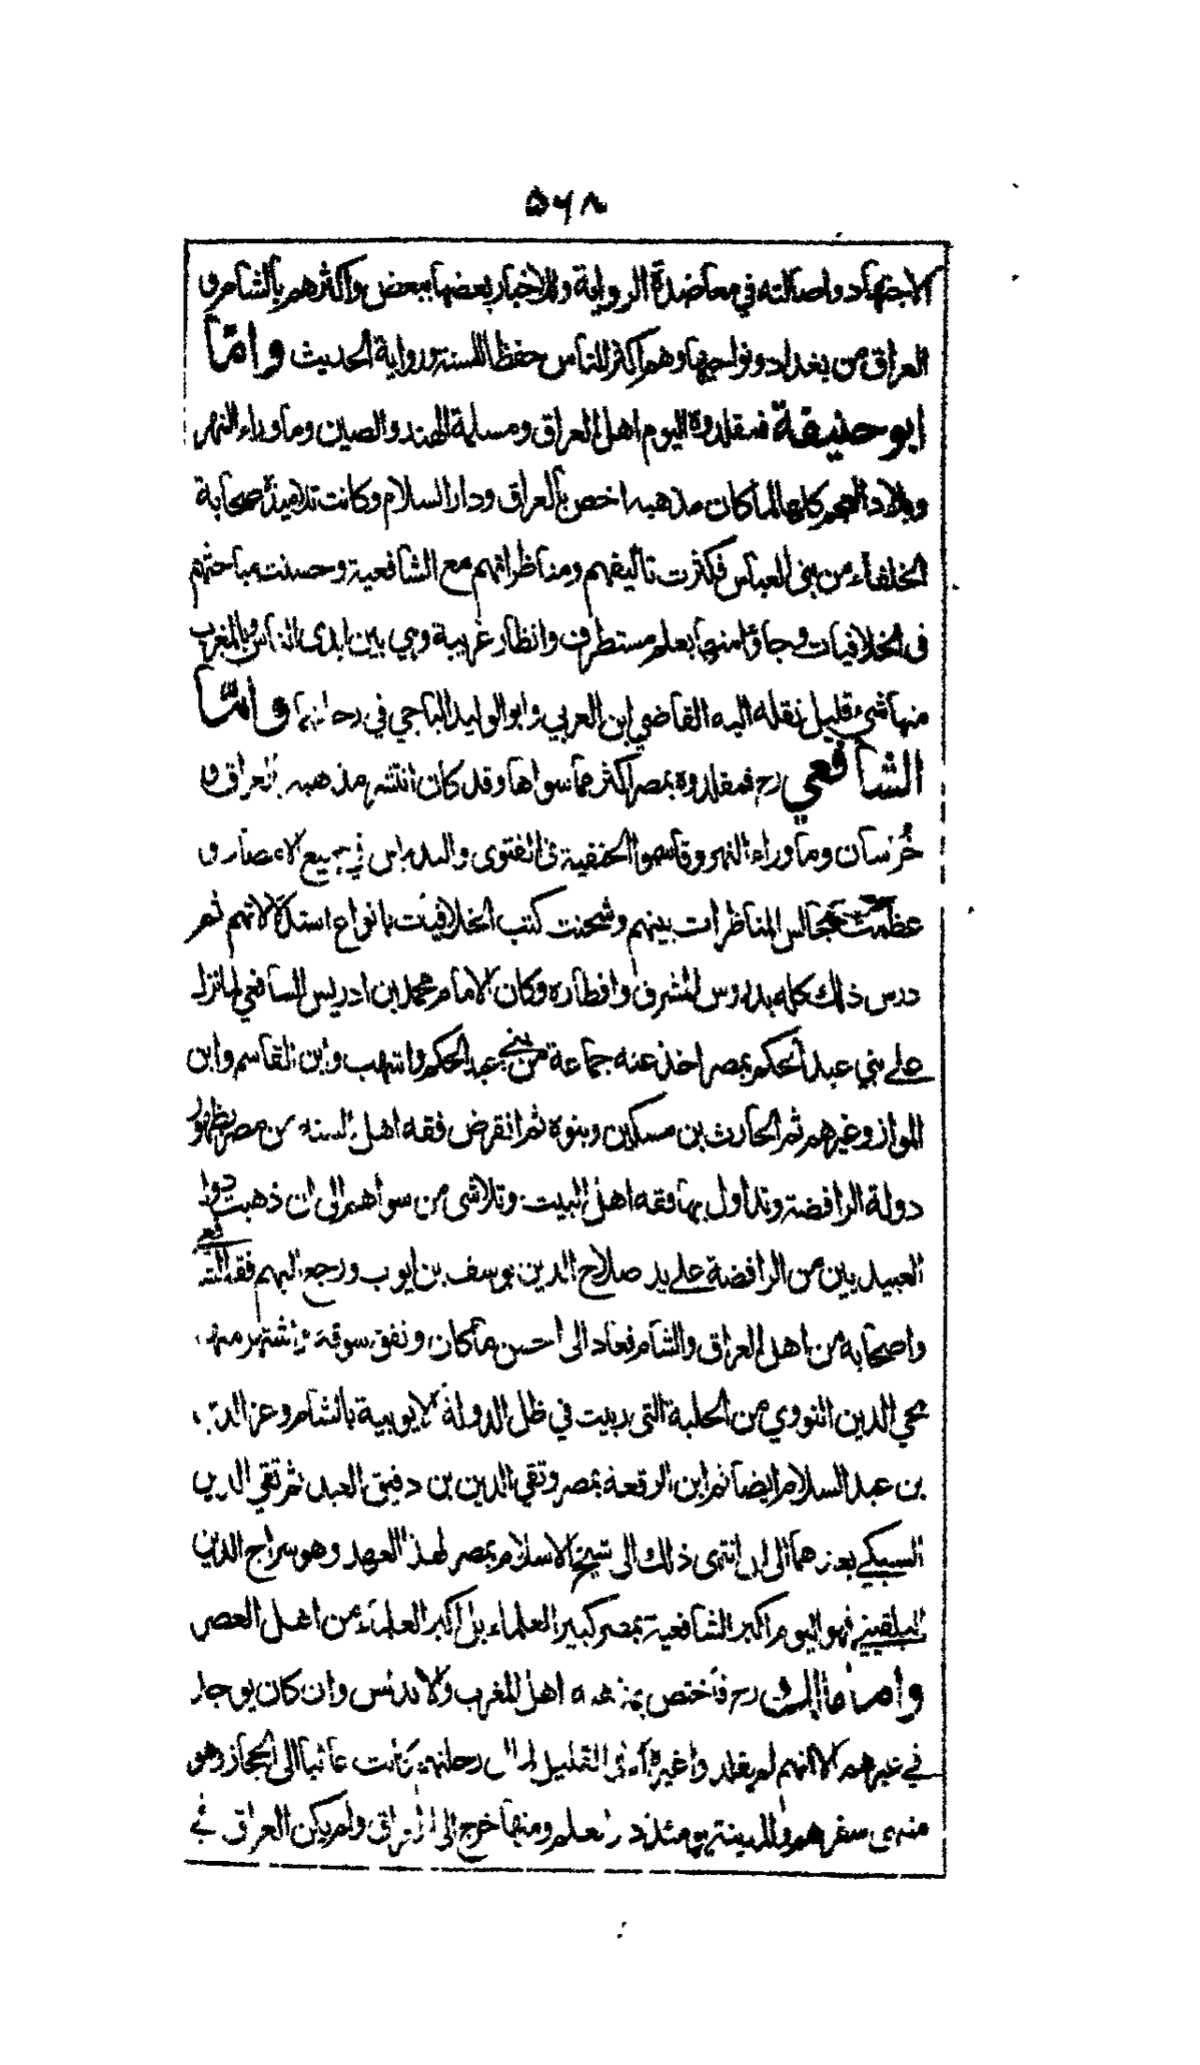 ۵۶۸
الاجتهاد واصالته في معاضدة الرواية وللاخبار بعضها ببعض واكثرهم بالشام و
العراق من بغداد ونواحيها وهم اكثر الناس حفظا للسنة ورواية الحديث واما
ابو حنيفة فمقلدوه اليوم اهل العراق ومسلمة الهند والصين وما وراء النهر
وبلاد العجم كلها لما كان مذهبه اخص بالعراق ودار السلام وكانت تلاميذه صحابة
الخلفاء من بني العباس فكثرت تاليفهم ومناظراتهم مع الشافعية وحسنت مباحثهم
في الخلافيات وجاؤا منها بعلم مستطرف وانظار غريبة وهي بين ايدى الناس وبالمغرب
منها شيء قليل نقله اليه القاضي ابن العربي وابو الوليد الباجي في رحلتهما واما
الشافعي رح فمقلدوه بمصر اكثر مما سواها وقد كان انتشر مذهبه بالعراق و
خراسان وما وراء النهر وقاسموا الحنفية في الفتوى والتدريس في جميع الامصار و
عظمت مجالس المناظرات بينهم وشحنت كتب الخلافيات بانواع استدلالاتهم ثم
درس ذلك كله بدروس المشرق واقطاره وكان الامام محمد بن ادريس الشافعي لما نزل
على بني عبد الحكم بمصر اخذ عنه جماعة من بني عبد الحكم واشهب وابن القاسم وابن
المواز وغيرهم ثم الحارث بن مسكين وبنوه ثم انقرض فقه اهل السنه من مصر بظهور
دولة الرافضة وتداول بها فقه اهل البيت وتلاشى من سواهم الى ان ذهبت دولة
العبيديين من الرافضة على يد صلاح الدين يوسف بن ايوب ورجع اليهم فقه الشافعي
واصحابه من اهل العراق والشام فعاد الى احسن ما كان ونفق سوقه واشتهر منهم
محي الدين النووي من الحلبة التى ربيت في ظل الدولة الايوبية بالشام وعز الدين
بن عبد السلام ايضا ثم ابن الرقعة بمصر وتقي الدين بن دقيق العبد ثم تقي الدين
السبكي بعدهما الى ان انتهى ذلك الى شيخ الاسلام بمصر لهذا العهد وهو سراج الدين
البلقيني فهو اليوم اكبر الشافعية بمصر كبير العلماء بل اكبر العلماء من اهل العصر
واما مالك رح فاختص بمذهبه اهل المغرب والاندلس وان كان يوجد
في غيرهم الا انهم لم يقلدوا غيره الا في القليل لما ان رحلتهم كانت غالبا الى الحجاز وهو
منتهى سفرهم والمدينة يومئذ دار العلم ومنها خرج الى العراق ولم يكن العراق في